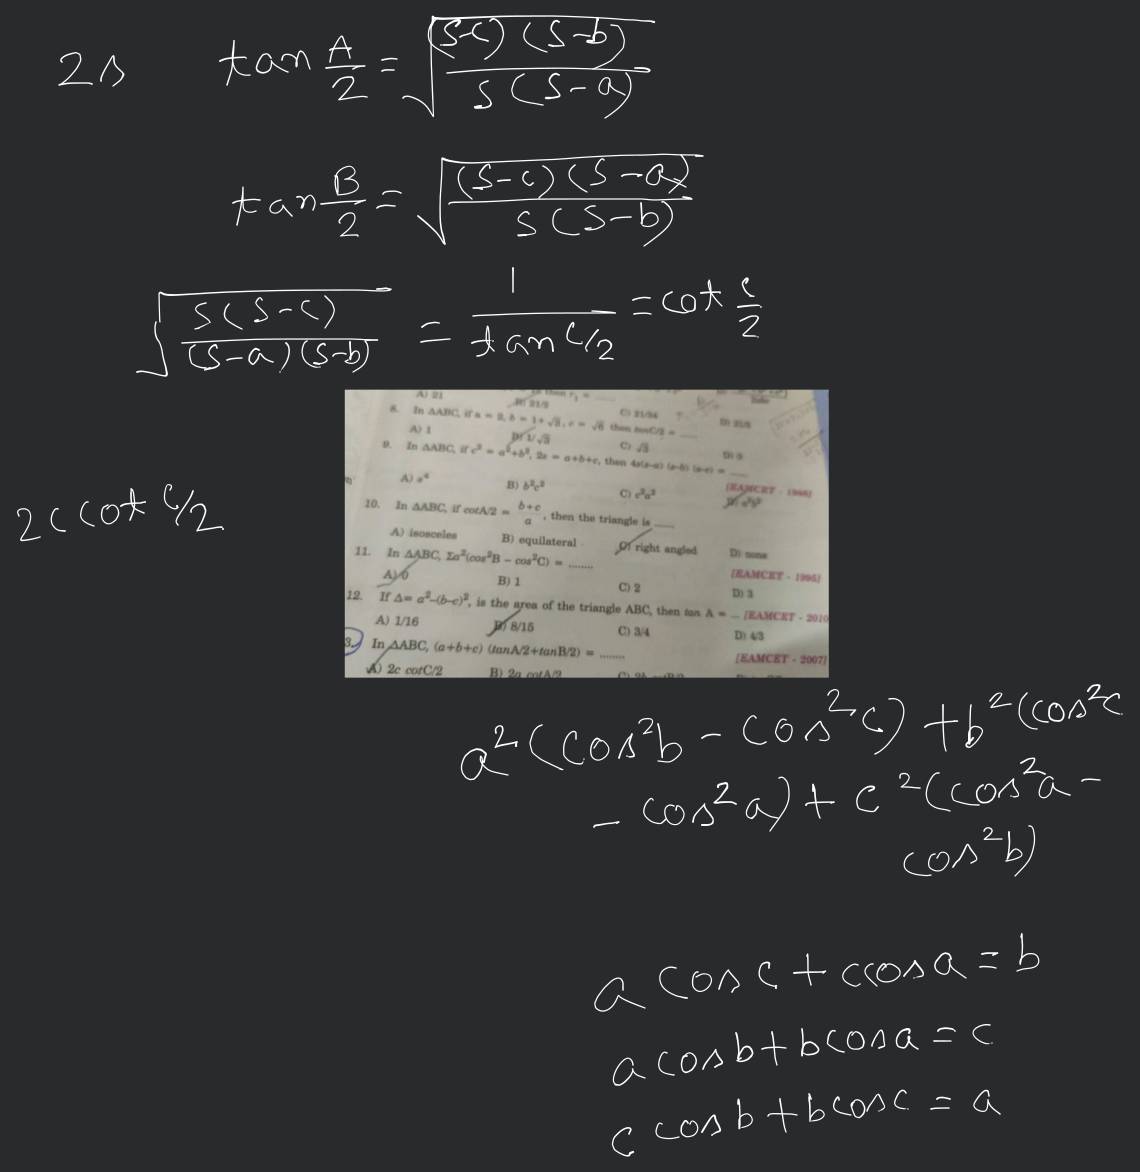 2s tan A/2 = √((s-c) (s-b) / s (s-a))
tan B/2 = √((s-c) (s-a) / s (s-b))
√(s(s-c) / (s-a) (s-b)) = 1 / tan C/2 = cot c/2
A) 21 B) 21/2 C) 21/24
8. In ΔABC, if a = 2, b = 1+√3, c = √6 then tanC/2 = ____
A) 1 B) 1/√3 C) √3 D) 3
9. In ΔABC, if c² = a²+b², 2s = a+b+c, then 4s(s-a) (s-b) (s-c) = ____
[EAMCET - 1986]
B) b²c² C) c²a² D) a²b²
10. In ΔABC, if cotA/2 = b+c/a, then the triangle is ____
A) isosceles B) equilateral C) right angled D) none
[EAMCET - 1995]
11. In ΔABC, Σa²(cos²B – cos²C) = .......
A) 0 B) 1 C) 2 D) 3
12. If Δ= a²–(b–c)², is the area of the triangle ABC, then tan A = .. [EAMCET - 2010
A) 1/16 B) 8/15 C) 3/4 D) 4/3
[EAMCET - 2007]
3. In ΔABC, (a+b+c) (tanA/2+tanB/2) = .......
A) 2c cotC/2 B) 2a cotA/2
2c cot c/2
a² (cos²b - cos²c) + b² (cos²c
- cos²a) + c² (cos²a -
cos²b)
a cos c + c cos a = b
a cos b + b cos a = c
c cos b + b cos c = a